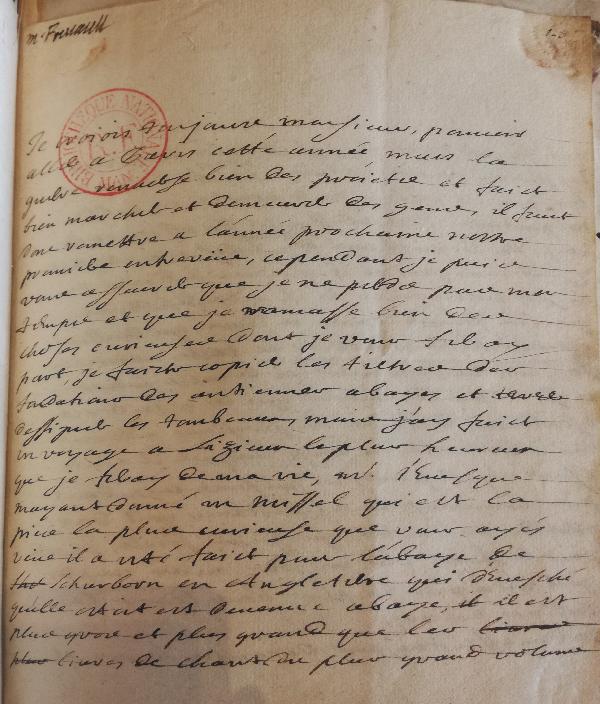 m. Foucault
BIBLIOTHEQUE NATIONALE MAN
Je croiois toujours monsieur, pouvoir
aller à Paris cette année mais la
guerre renverse bien des projetz et faict
bien marcher et demeurer des gens, il faut
donc remettre a l'année prochaine nostre
premiere entreveüe, cependant je puis
vous asseurer que je ne perds pas mon
temps et que je ramasse bien des
choses curieuses dont je vous feray
part, je faicts copier les tiltres des
fondations des antiennes abayes et
dessigner les tombeaux mais j'ay faict
un voyage a Lizieux le plus heureux
que je feray de ma vie, mr. l'Evesque
mayant donné un missel qui est la
piece la plus curieuse que vous ayés
veüe il a esté faict pour l'abaye de
Schirborn en Angleterre qui d'evesché
quelle estoit est devenue abaye, il est
plus gros et plus grand que les
livres de chant du plus grand volume